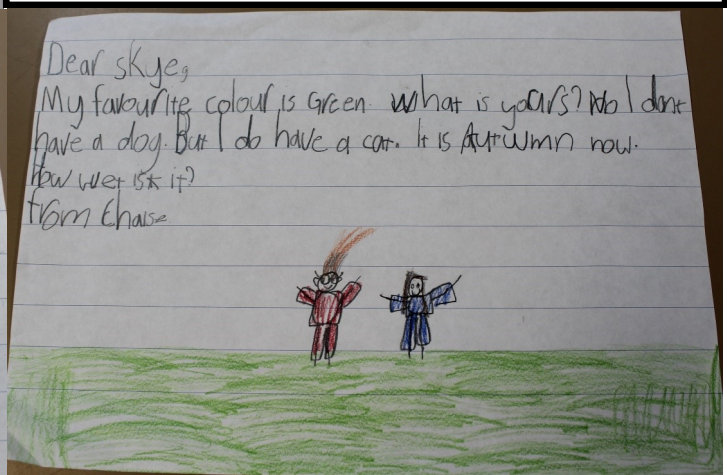 Dear Skye,
My favourite colour is Green. What is yours? No I dont
have a dog. But I do have a cat. It is Autumn now.
How wet is it?
from Chaise